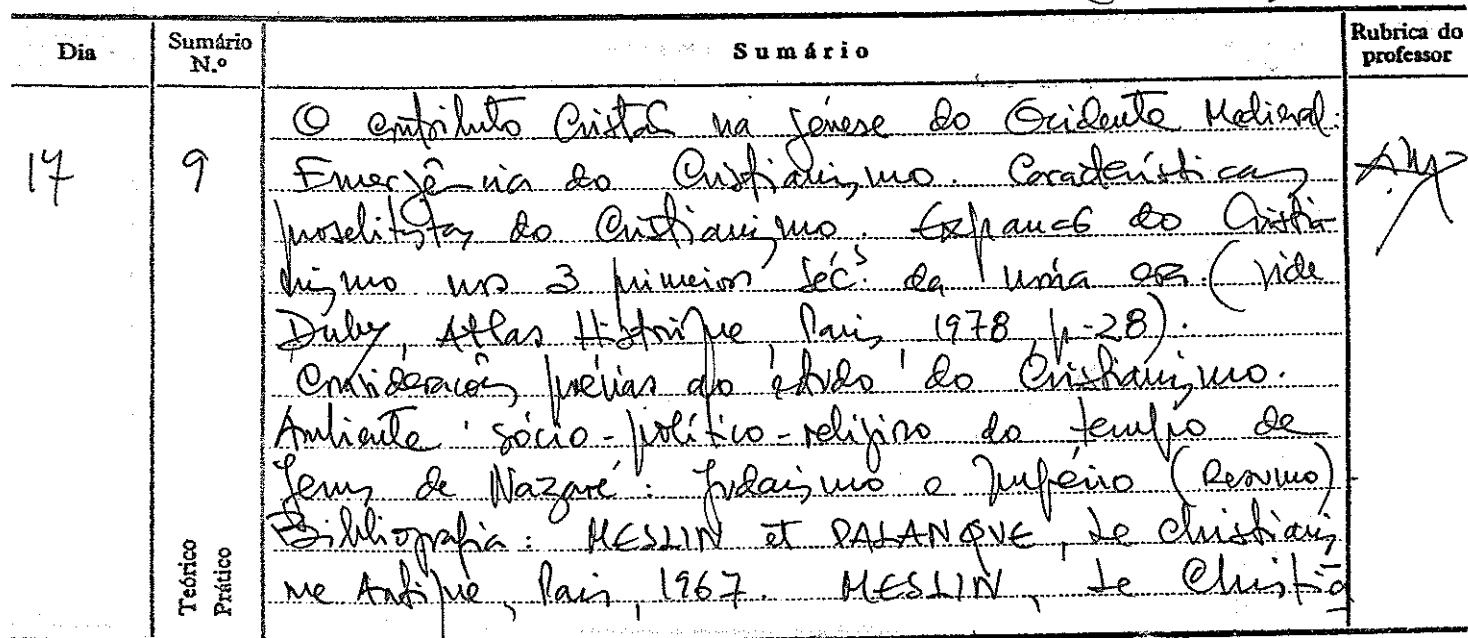 Dia
Sumário N.º
Sumário
Rubrica do professor
17
9
O contributo Cristão na génese do Ocidente Medieval:
Emergência do Cristianismo. Características
proselitistas do Cristianismo. Expansão do Cristia-
nismo nos 3 primeiros séc.s da nossa era. (vide
Duby, Atlas Historique, Paris, 1978, p-28).
Considerações prévias ao estudo do Cristianismo.
Ambiente sócio-político-religioso do tempo de
Jesus de Nazaré: Judaísmo e Império (Resumo)
Bibliografia: MESLIN et PALANQUE, Le Christianis
me Antique, Paris, 1967. MESLIN, Le Christia
Teórico
Prático